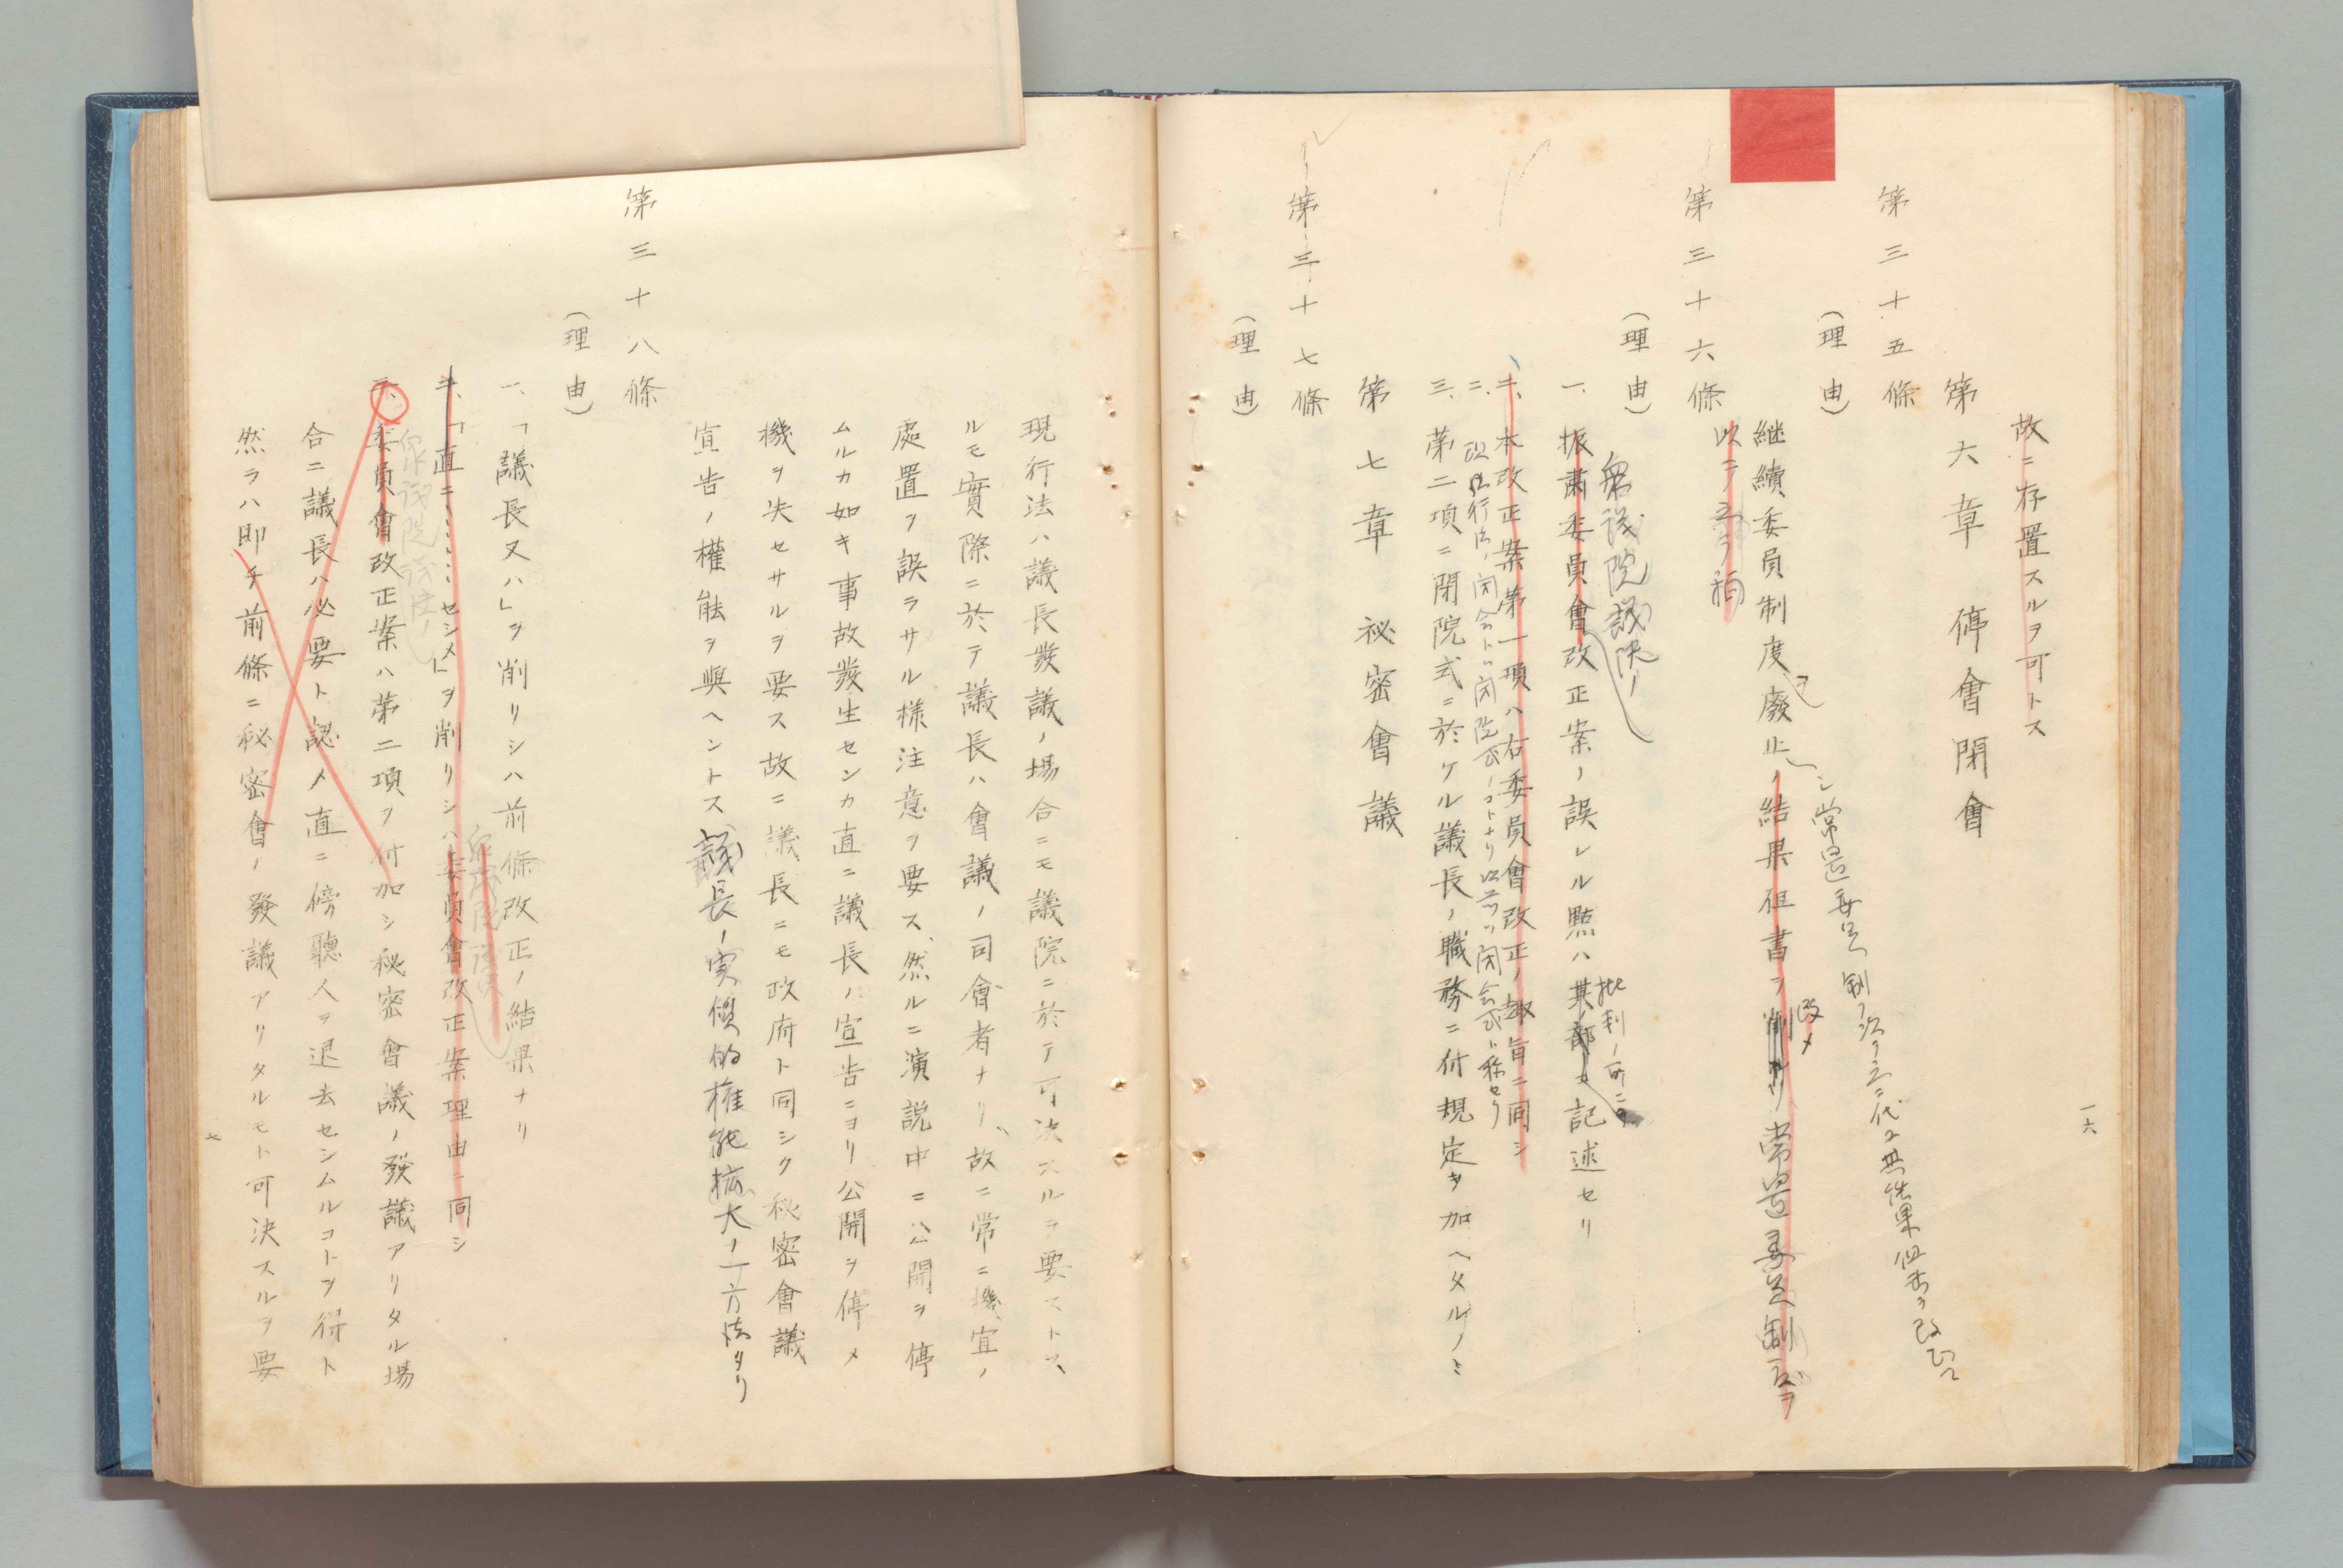 一六
故ニ存置スルヲ可トス
第六章 停會閉會
第三十五條
(理由)
継續委員制度ヲ廢止シ常置委員制
ノ結果但書ヲ
改メ
常置委員制
以テ之
第三十六條
(理由)
衆議院議決ノ
一、振肅委員會改正案ノ誤レル點ハ
批判ノ所ニ
記述セリ
二、本改正案第一項ハ右委員會改正ノ趣旨ニ同シ
二、現行法ノ閉会トハ閉院式ノコトナリ
三、第二項ニ閉院式ニ於ケル議長ノ職務ニ付規定ヲ加ヘタルノミ
第七章 祕密會議
第三十七條
(理由)
現行法ハ議長發議ノ場合ニモ議院ニ於テ可決スルヲ要ストス、
ルモ實際ニ於テ議長ハ會議ノ司會者ナリ、故ニ常ニ機宜ノ
處置ヲ誤ラサル様注意ヲ要ス、然ルニ演説中ニ公開ヲ停
ムルカ如キ事故發生センカ直ニ議長ノ宣告ニヨリ公開ヲ停メ
機ヲ失セサルヲ要ス故ニ議長ニモ政府ト同シク秘密會議
宣告ノ權能ヲ與ヘントス、議長ノ実價的権能拡大ノ一方法タリ
第三十八條
(理由)
一、「議長又ハ」ヲ削リシハ前條改正ノ結果ナリ
二、「直ニ……セシメ」ヲ削リシハ委員會改正案理由ニ同シ
衆議院議決ノ
委員會改正案ハ第二項ヲ付加シ秘密會議ノ發議アリタル場
合ニ議長ハ必要ト認メ直ニ傍聽人ヲ退去セシムルコトヲ得ト
然ラハ即チ前條ニ秘密會ノ發議アリタルモト可決スルヲ要
七